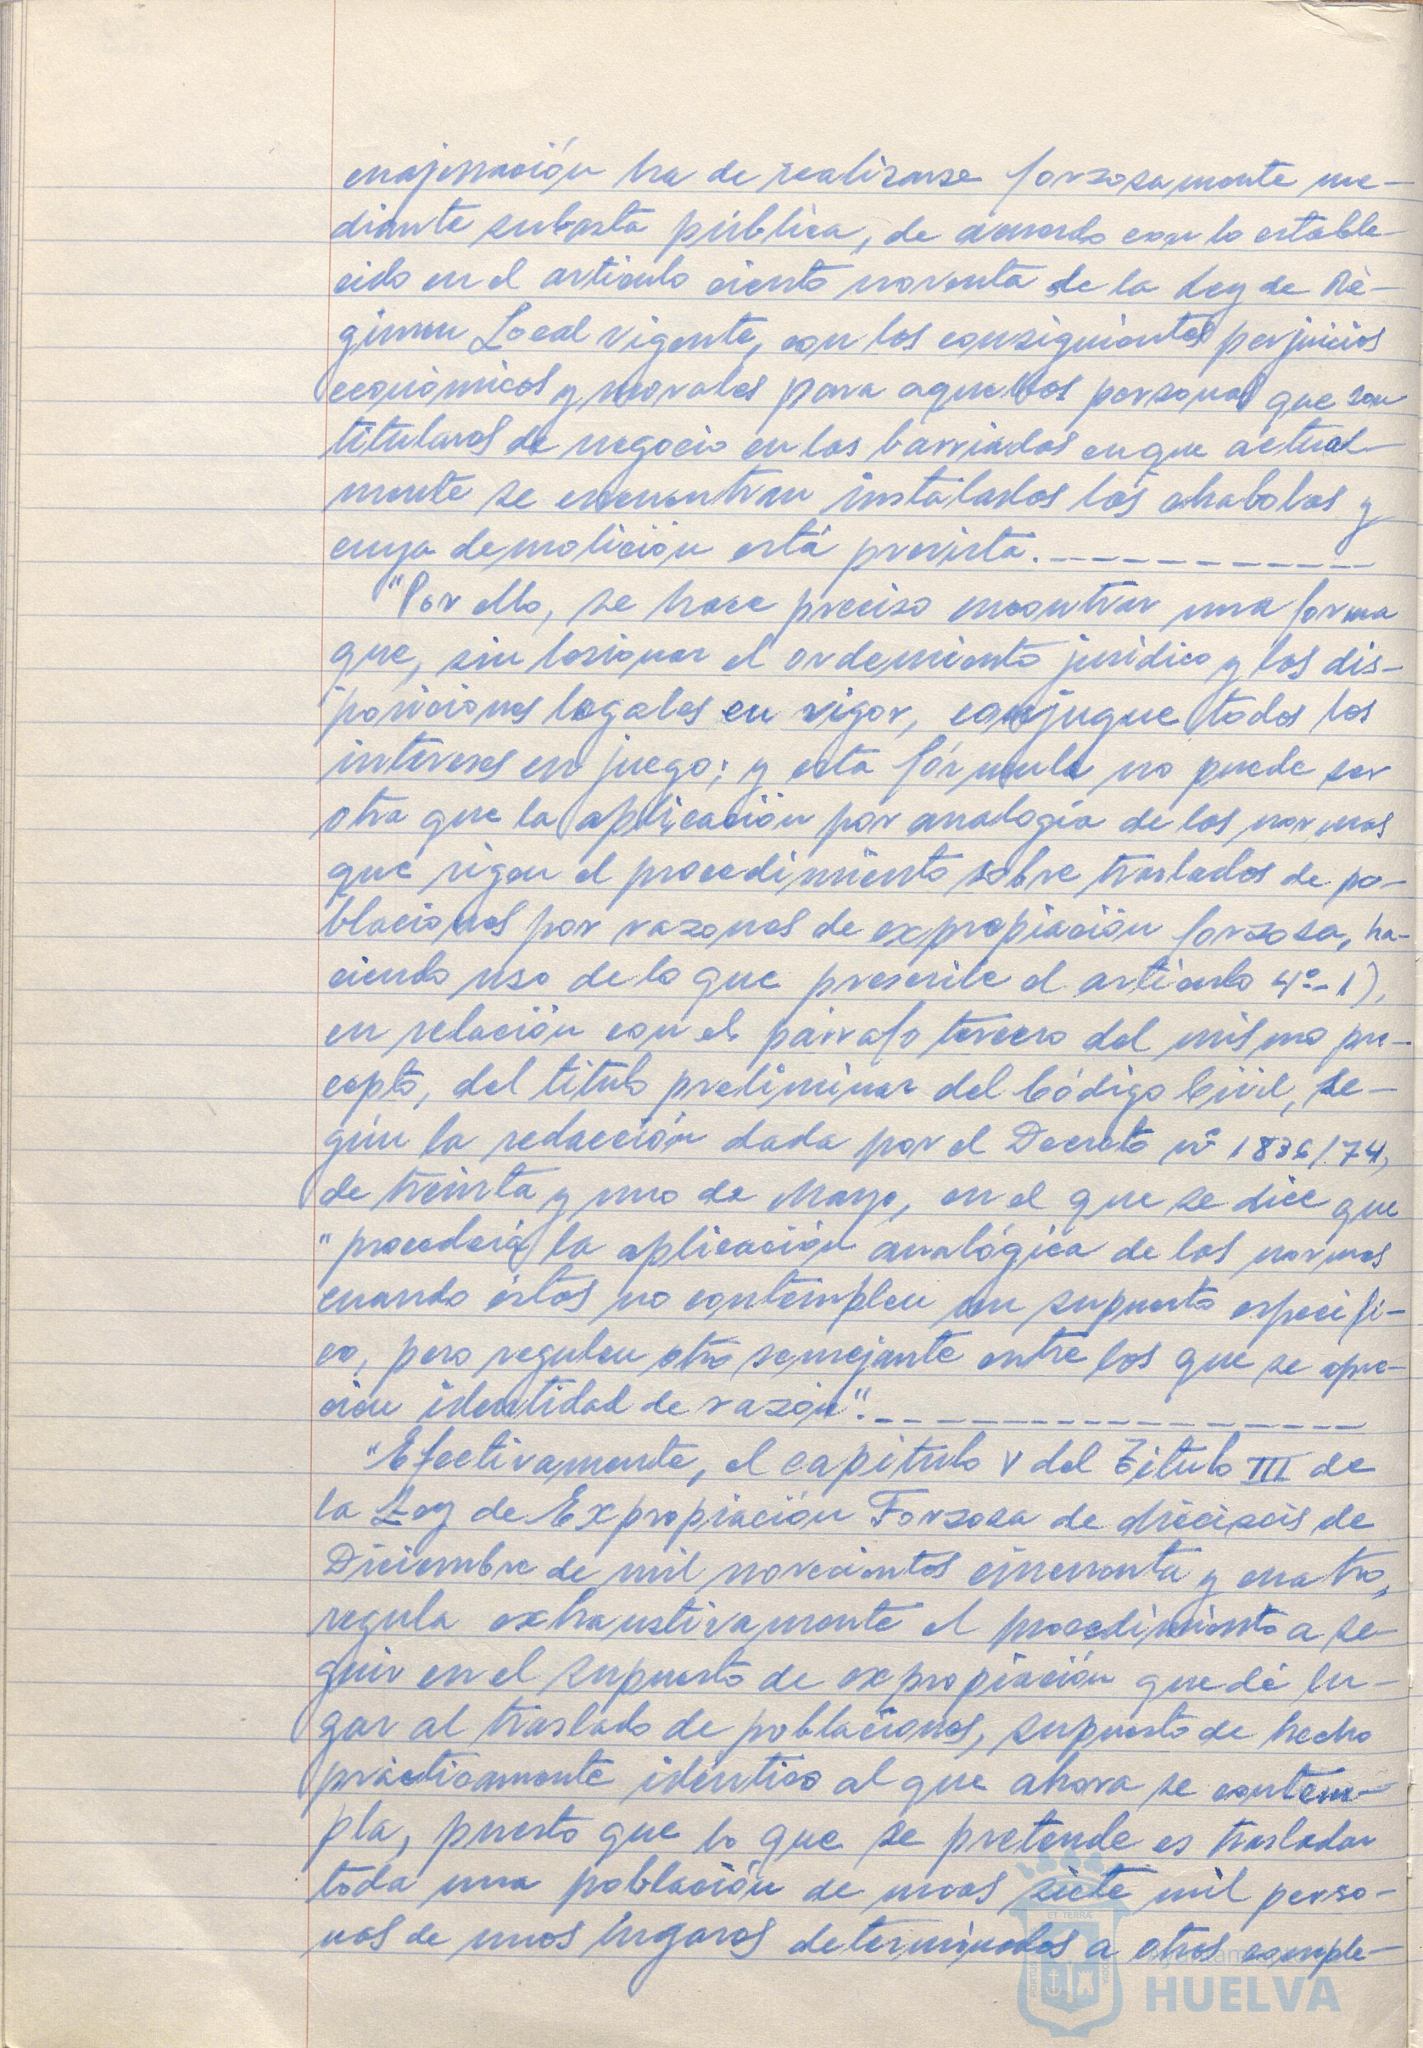 enajenación ha de realizarse forzosamente me-
diante subasta pública, de acuerdo con lo estable-
cido en el articulo ciento noventa de la Ley de Ré-
gimen Local vigente, con los consiguientes perjuicios
económicos y morales para aquellas personas que son
titulares de negocio en las barriadas en que actual-
mente se encuentran instalados las chabolas y
cuya demolición está prevista.
"Por ello, se hace preciso encontrar una forma
que, sin lesionar el ordemiento jurídico y las dis-
posiciones legales en vigor, conjugue todos los
intereses en juego; y esta fórmula no puede ser
otra que la aplicación por analogía de las normas
que rigen el procedimiento sobre traslados de po-
blaciones por razones de expropiación forzosa, ha-
ciendo uso de lo que prescribe el articulo 4º-1),
en relación con el párrafo tercero del mismo pre-
cepto, del titulo preliminar del Código Civil, se-
gún la redacción dada por el Decreto nº 1836/74,
de treinta y uno de Mayo, en el que se dice que
"procederá la aplicación analógica de las normas
cuando éstas no contemplen un supuesto específi-
co, pero regulen otro semejante entre los que se apre-
cien identidad de razón".
"Efectivamente, el capitulo V del Titulo III de
la Ley de Expropiación Forzosa de dieciseis de
Diciembre de mil novecientos cincuenta y cuatro,
regula exhaustivamente el procedimiento a se-
guir en el supuesto de expropiación que dé lu-
gar al traslado de poblaciones, supuesto de hecho
prácticamente identico al que ahora se contem-
pla, puesto que lo que se pretende es trasladar
toda una población de unas siete mil perso-
nas de unos lugares determinados a otros comple-
HUELVA